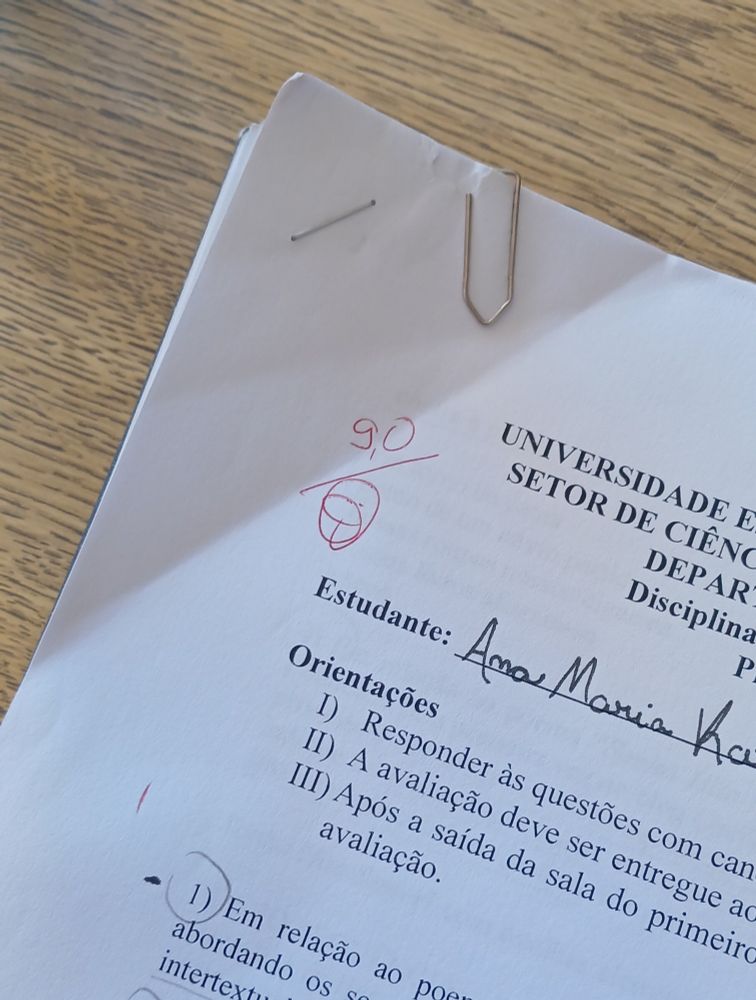 9,0
UNIVERSIDADE E
SETOR DE CIÊNC
DEPART
Disciplina
P
Estudante: Ana Maria
Orientações
I) Responder às questões com can
II) A avaliação deve ser entregue ao
III) Após a saída da sala do primeiro
avaliação.
1) Em relação ao poem
abordando os se
intertextu